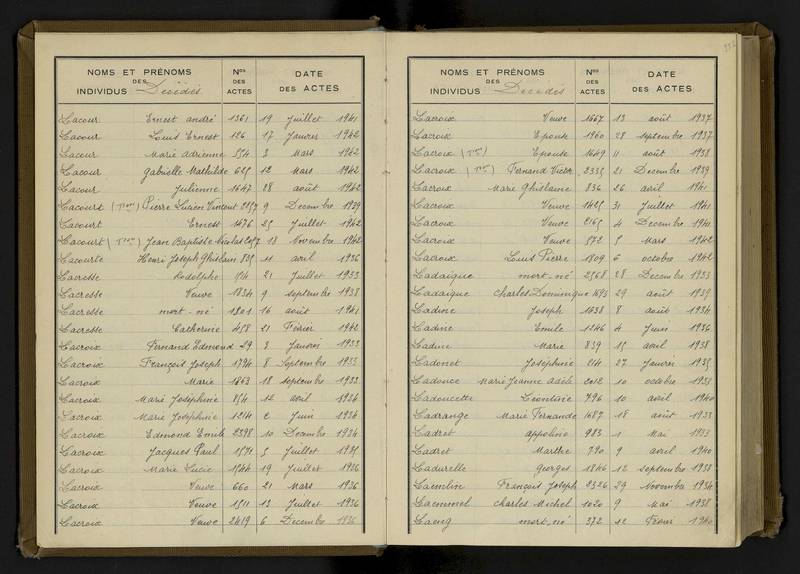 NOMS ET PRÉNOMS DES INDIVIDUS Décédés Nos DES ACTES DATE DES ACTES
Lacour Ernest André 1361 19 Juillet 1941
Lacour Louis Ernest 126 17 Janvier 1942
Lacour Marie Adrienne 554 3 Mars 1942
Lacour Gabrielle Mathilde 625 12 Mars 1942
Lacour Julienne 1647 28 août 1942
Lacourt Pierre Lucien Vincent 9 Décembre 1939
Lacourt Ernest 1476 25 Juillet 1942
Lacourt Jean Baptiste Nicolas 18 Novembre 1942
Lacourte Henri Joseph Ghislain 835 11 avril 1936
Lacresse Rodolphe 21 Juillet 1933
Lacresse Veuve 1834 9 septembre 1938
Lacresse mort-né 1301 16 août 1941
Lacresse Catherine 458 21 Février 1942
Lacroix Fernand Edmond 29 3 Janvier 1933
Lacroix François Joseph 1794 8 Septembre 1933
Lacroix Marie 1863 18 septembre 1933
Lacroix Marie Joséphine 854 12 avril 1934
Lacroix Marie Joséphine 1214 2 Juin 1934
Lacroix Edmond Emile 2398 10 Décembre 1934
Lacroix Jacques Paul 1571 5 Juillet 1935
Lacroix Marie Lucie 1544 19 Juillet 1936
Lacroix Veuve 660 21 Mars 1936
Lacroix Veuve 1511 13 Juillet 1936
Lacroix Veuve 2419 6 Décembre 1936
NOMS ET PRÉNOMS DES INDIVIDUS Décédés Nos DES ACTES DATE DES ACTES
Lacroix Veuve 1667 13 août 1937
Lacroix Epouse 1960 28 septembre 1937
Lacroix Epouse 1649 11 août 1938
Lacroix Fernand Victor 2335 21 Décembre 1939
Lacroix Marie Ghislaine 836 26 avril 1941
Lacroix Veuve 1425 31 Juillet 1941
Lacroix Veuve 2165 4 Décembre 1941
Lacroix Veuve 572 5 Mars 1942
Lacroix Louis Pierre 1809 6 octobre 1942
Ladaique mort-né 2568 28 Décembre 1933
Ladaique Charles Dominique 1693 29 août 1939
Ladine Joseph 1638 8 août 1934
Ladine Emile 1246 4 Juin 1936
Ladine Marie 839 15 avril 1938
Ladonet Joséphine 214 27 Janvier 1935
Ladouce Marie Jeanne Adèle 2012 10 octobre 1938
Ladoucette Léontine 796 10 avril 1940
Ladrange Marie Fernande 1687 18 août 1933
Ladret appoline 983 1 Mai 1933
Ladret Marthe 790 9 avril 1940
Ladurelle Georges 1846 12 septembre 1938
Laemlin François Joseph 2326 29 Novembre 1934
Laemmel Charles Michel 1020 9 Mai 1938
Laeng mort-né 372 12 1940